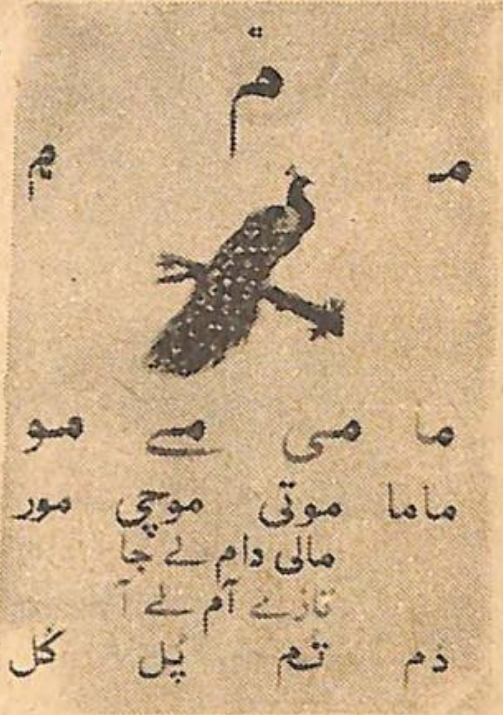 م
مـ ـم
ما می مے مو
ماما موتی موچی مور
مالی دام لے جا
تازے آم لے آ
دم تم پل کل